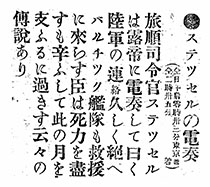 ●ステツセルの電奏
仝日午前零時卅二分東京發
仝二時卅五分
旅順司令官ステツセル
は露帝に電奏して曰く
陸軍の連絡久しく絶へ
バルチツク艦隊も救援
に來らす臣は死力を盡
すも辛ふして此の月を
支ふるに過きす云々の
傳說あり